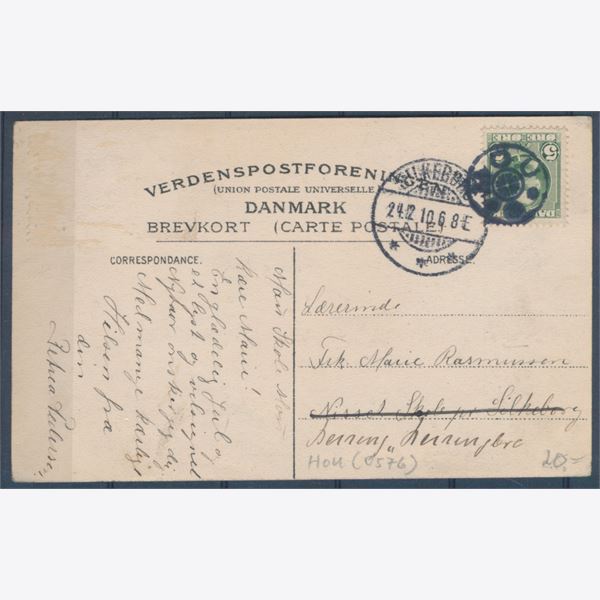 VERDENSPOSTFORENIN
(UNION POSTALE UNIVERSELLE
DANMARK
BREVKORT (CARTE POSTALE)
SILKEB
24.12.10.6 8 E
5
CORRESPONDANCE.
ADRESSE.
Kære Marie!
En glædelig Jul og
et lyst og velsignet
Nytaar ønsker jeg dig
Med mange kærlige
Hilsen fra
din
Petrea Petersen
Lærerinde
Frk. Marie Rasmussen
Skole pr Silkeborg
HOU (0576)
20.-